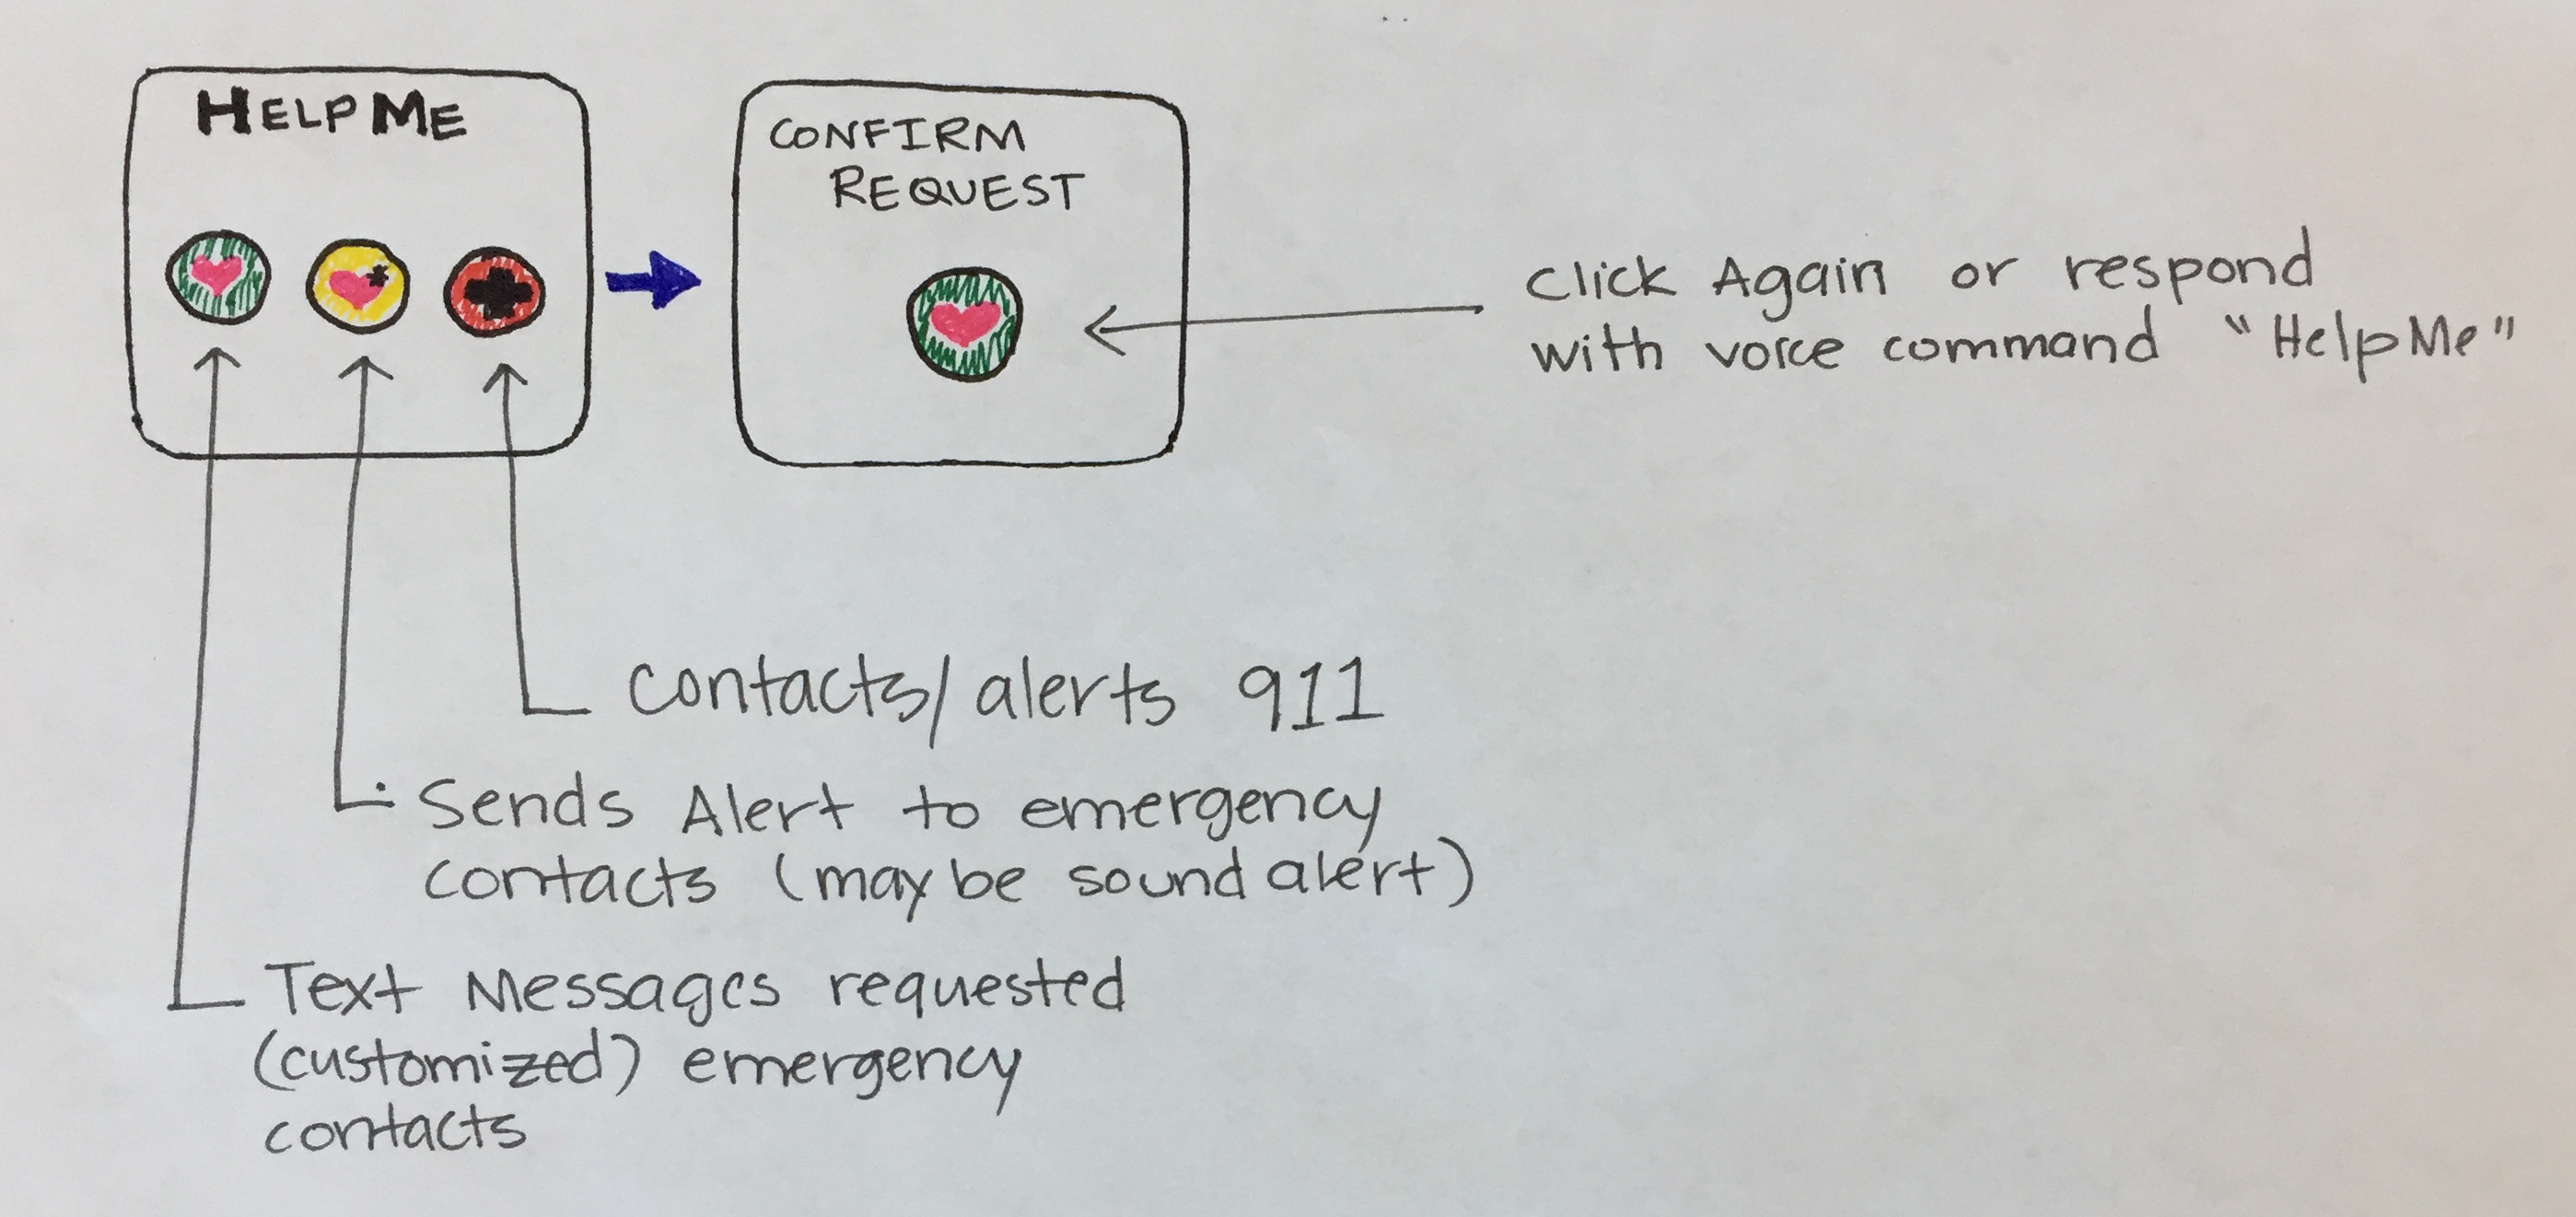 HELP ME
CONFIRM
REQUEST
Click Again or respond
with voice command "HelpMe"
Contacts/alerts 911
Sends Alert to emergency
contacts (may be sound alert)
Text Messages requested
(customized) emergency
contacts